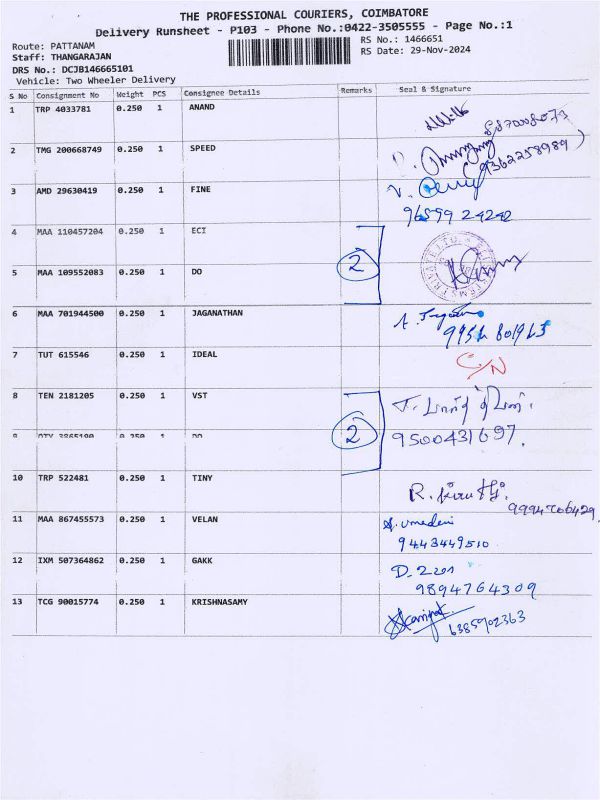 THE PROFESSIONAL COURIERS, COIMBATORE
Delivery Runsheet - P103 - Phone No.:0422-3505555 - Page No.:1
Route: PATTANAM
RS No.: 1466651
Staff: THANGARAJAN
RS Date: 29-Nov-2024
DRS No.: DCJB146665101
Vehicle: Two Wheeler Delivery
S No Consignment No Weight PCS Consignee Details Remarks Seal & Signature
1 TRP 4033781 0.250 1 ANAND
2 TMG 200668749 0.250 1 SPEED
(9362258989)
3 AMD 29630419 0.250 1 FINE
96599 24242
4 MAA 110457204 0.250 1 ECI
2
5 MAA 109552083 0.250 1 DO
6 MAA 701944500 0.250 1 JAGANATHAN
7 TUT 615546 0.250 1 IDEAL C/N
8 TEN 2181205 0.250 1 VST
2
9500431697.
9 0.250 1 DO
10 TRP 522481 0.250 1 TINY
9994706429
11 MAA 867455573 0.250 1 VELAN
9443449510
12 IXM 507364862 0.250 1 GAKK
9894764309
13 TCG 90015774 0.250 1 KRISHNASAMY
6385902363